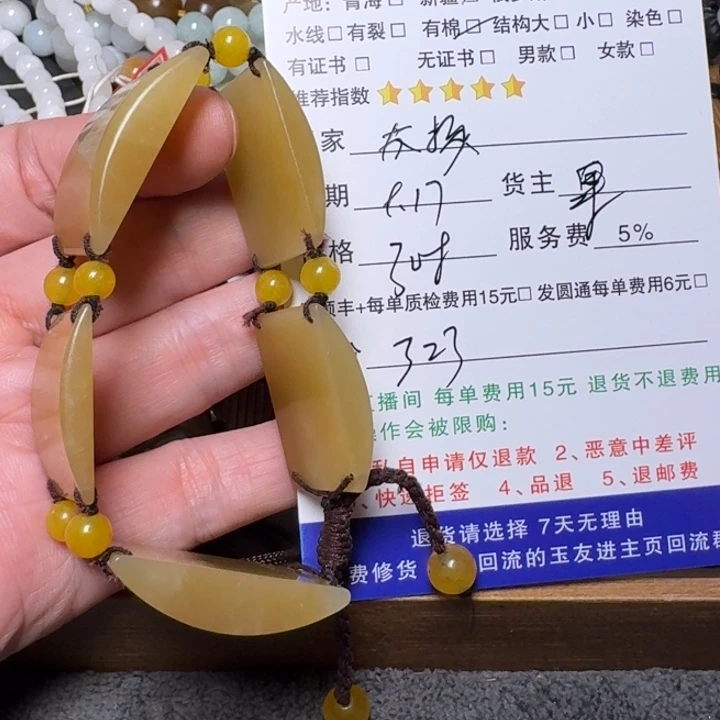 产地：青海□ 新疆□ 俄
水线□ 有裂□ 有棉□ 结构大□ 小□ 染色□
有证书□ 无证书□ 男款□ 女款□
推荐指数
家
期 6.17 货主
格 308 服务费 5%
顺丰+每单质检费用15元□ 发圆通每单费用6元□
323
播间 每单费用15元 退货不退费用
操作会被限购：
私自申请仅退款 2、恶意中差评
、快递拒签 4、品退 5、退邮费
退货请选择 7天无理由
费修货 回流的玉友进主页回流群